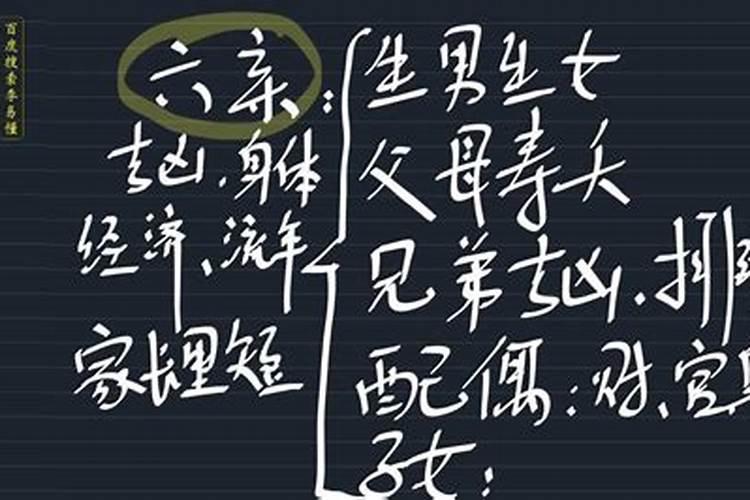 百度搜索李易懂
六亲：
吉凶、身体
经济、流年
家长里短
生男生女
父母寿夭
兄弟吉凶、排
配偶：财、官
子女：